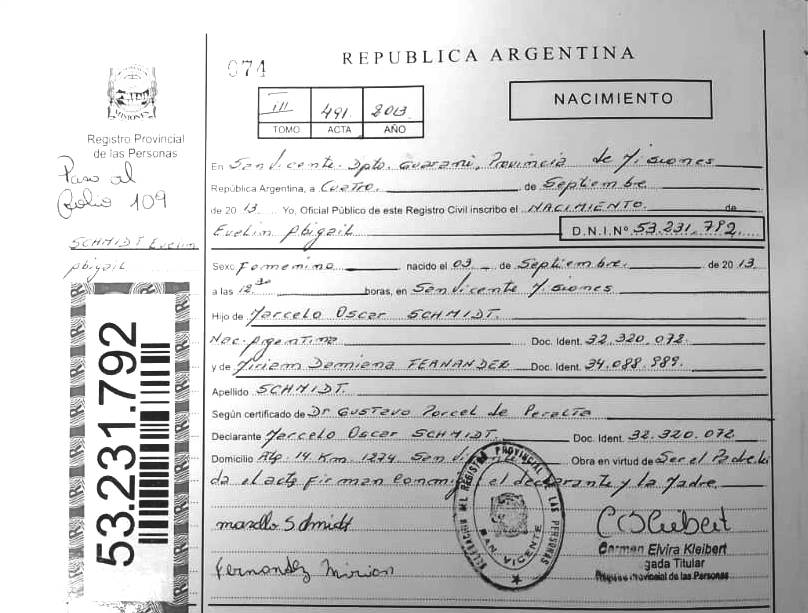 074
REPUBLICA ARGENTINA
III 491 2013
TOMO ACTA AÑO
NACIMIENTO
MISIONES
Registro Provincial
de las Personas
Paso al
folio 109
SCHMIDT Evelin
Abigail
53.231.792
En San Vicente. Dpto. Guarani, Provincia de Misiones
República Argentina, a Cuatro. de Septiembre
de 20 13 Yo, Oficial Público de este Registro Civil inscribo el NACIMIENTO. de
Evelin Abigail D.N.I.Nº 53.231.792
Sexo Femenino nacido el 03 de Septiembre. de 20 13
a las 12.30 horas, en San Vicente Misiones
Hijo de Marcelo Oscar SCHMIDT.
Nac. Argentina Doc. Ident. 32.320.072
y de Miriam Damiena FERNANDEZ Doc. Ident. 34.088.989.
Apellido SCHMIDT.
Según certificado de Dr Gustavo Porcel de Peralta
Declarante Marcelo Oscar SCHMIDT. Doc. Ident. 32.320.072
Domicilio Alp. 14 Km. 1274 San Obra en virtud de Ser el Padre. Lei
da el acta firman conmigo el declarante y la Madre.
DELEGACION DEL REGISTRO PROVINCIAL DE LAS PERSONAS
SAN VICENTE
marcello Schmidt
Fernandez Mirian
Carmen Elvira Kleibert
gada Titular
Registro Provincial de las Personas